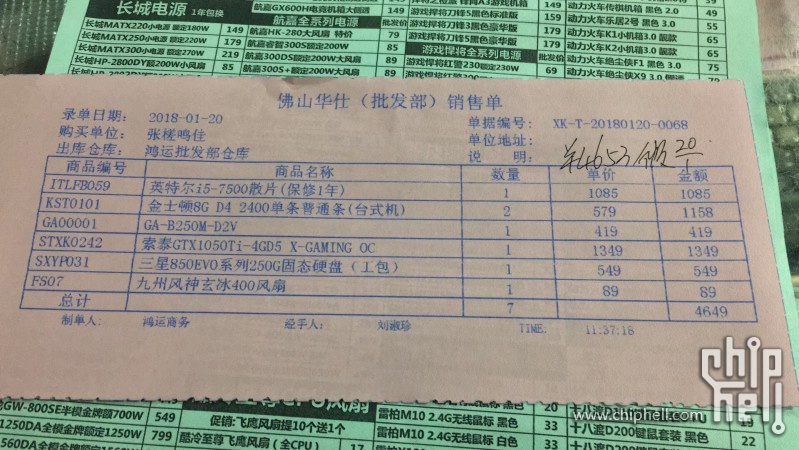 长城电源 1年包换
航嘉GX600H电竞机箱大师
149
长城MATX220小电源 额定180W 149
航嘉全系列电源 批发价
游戏悍将刀锋5黑色标准版 149
动力火车传祺机箱 黑色
动力火车乐居2号 黑色 3.0 55
长城MATX250小电源 额定200W 179
航嘉HK-280大风扇 特价 79
游戏悍将刀锋3黑色豪华版
动力火车K1小机箱3.0 靓款 75
长城MATX300小电源 额定270W 219
航嘉睿智300S额定200W 89
动力火车K2小机箱3.0 靓款 65
长城HP-2800DY额定200W小风扇 85
航嘉300DS额定200W大风扇 85
游戏悍将全系列电源 批发价
动力火车绝尘侠F1 黑色 3.0 75
航嘉300S+额定200W大风扇 89
游戏悍将红警230额定230W 69
动力火车绝尘侠X9 3.0 侧透
佛山华仕（批发部）销售单
录单日期: 2018-01-20 单据编号: XK-T-20180120-0068
购买单位: 张槎鸣佳 单位地址:
出库仓库: 鸿运批发部仓库 说 明:
商品编号 商品名称 数量 单价 金额
ITLFB059 英特尔i5-7500散片(保修1年) 1 1085 1085
KST0101 金士顿8G D4 2400单条普通条(台式机) 2 579 1158
GA00001 GA-B250M-D2V 1 419 419
STXK0242 索泰GTX1050Ti-4GD5 X-GAMING OC 1 1349 1349
SXYP031 三星850EVO系列250G固态硬盘（工包） 1 549 549
FS07 九州风神玄冰400风扇 1 89 89
总计 7 4649
制单人: 鸿运商务 经手人: 刘淑珍 TIME: 11:37:18
GW-800SE半模金牌额700W 549
促销:飞鹰风扇提10个送1个
雷柏M10 2.4G无线鼠标 黑色 33
www.chiphell.com
chip hell
1250DA全模金牌额定1250W 799
酷冷至尊飞鹰风扇（全CPU） 17
雷柏M10 2.4G无线鼠标 白色 33
十八渡D200键鼠套装 黑色 22